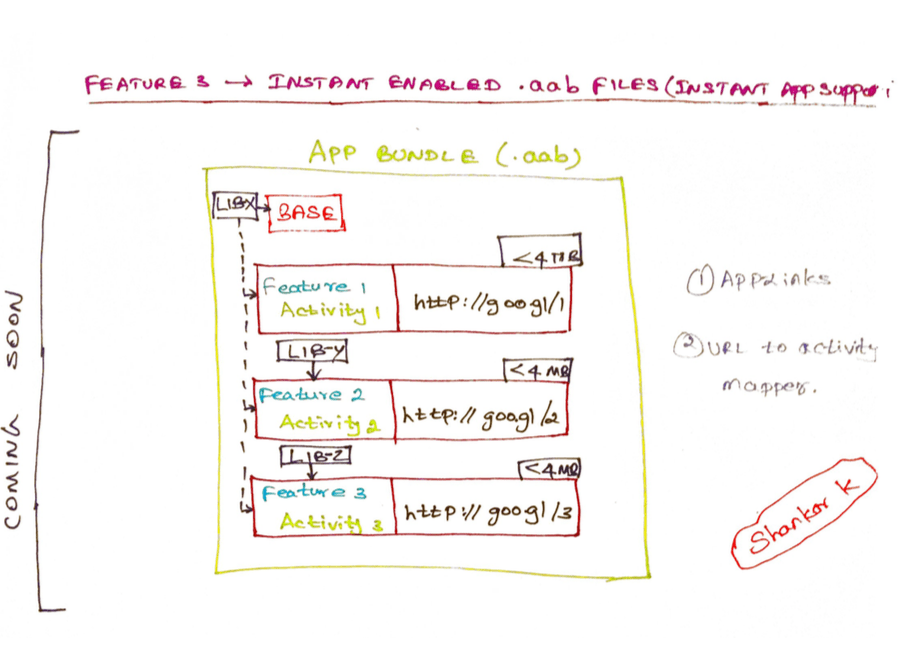 FEATURE 3 → INSTANT ENABLED .aab FILES (INSTANT APP Suppor
APP BUNDLE (.aab)
LIBX
BASE
<4 MB
Feature 1
Activity 1
http://googl/1
LIB-Y
<4 MB
Feature 2
Activity 2
http://googl/2
LIB-Z
<4 MB
Feature 3
Activity 3
http://googl/3
COMING SOON
① APPLinks
② URL to activity
mapper.
Shankar K